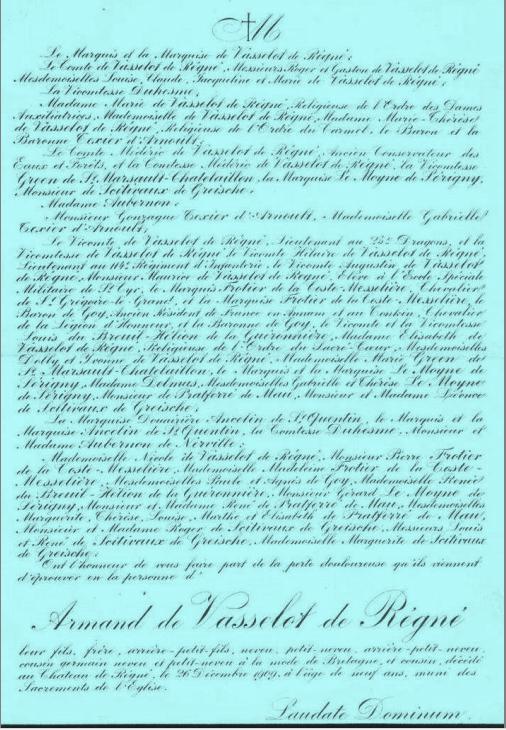 M
Le Marquis et la Marquise de Vasselot de Régné,
Le Comte de Vasselot de Régné, Messieurs Roger et Gaston de Vasselot de Régné
Mesdemoiselles Louise, Claude, Jacqueline et Marie de Vasselot de Régné,
La Vicomtesse Duhesme,
Madame Marie de Vasselot de Régné, Religieuse de l'Ordre des Dames
Auxiliatrices, Mademoiselle de Vasselot de Régné, Madame Marie-Thérèse
de Vasselot de Régné, Religieuse de l'Ordre du Carmel, le Baron et la
Baronne Texier d'Arnoult,
Le Comte Médéric de Vasselot de Régné, Ancien Conservateur des
Eaux et Forêts, et la Comtesse Médéric de Vasselot de Régné, la Vicomtesse
Green de St Marsault-Chatelaillon, la Marquise Le Moyne de Sérigny,
Monsieur de Scitivaux de Greische,
Madame Aubernon,
Monsieur Gonzague Texier d'Arnoult, Mademoiselle Gabrielle
Texier d'Arnoult,
Le Vicomte de Vasselot de Régné, Lieutenant au 25e Dragons, et la
Vicomtesse de Vasselot de Régné, le Vicomte Hilaire de Vasselot de Régné,
Lieutenant au 114e Régiment d'Infanterie, le Vicomte Augustin de Vasselot
de Régné, Monsieur Maurice de Vasselot de Régné, Elève à l'Ecole Spéciale
Militaire de St Cyr, le Marquis Frotier de la Coste-Messelière, Chevalier
de St Grégoire-le-Grand, et la Marquise Frotier de la Coste-Messelière, le
Baron de Goy, Ancien Résident de France en Annam et au Tonkin, Chevalier
de la Légion d'Honneur, et la Baronne de Goy, le Vicomte et la Vicomtesse
Louis du Breuil-Hélion de la Guéronnière, Madame Elisabeth de
Vasselot de Régné, Religieuse de l'Ordre du Sacré-Cœur, Mesdemoiselles
et Yvonne de Vasselot de Régné, Mademoiselle Marie Green de
St Marsault-Chatelaillon, le Marquis et la Marquise Le Moyne de
Sérigny, Madame Delmas, Mesdemoiselles Gabrielle et Thérèse Le Moyne
de Sérigny, Monsieur de Pratferré de Mau, Monsieur et Madame
de Scitivaux de Greische,
La Marquise Douairière Ancelin de St Quentin, le Marquis et la
Marquise Ancelin de St Quentin, la Comtesse Duhesme, Monsieur et
Madame Aubernon de Nerville;
Mademoiselle Nicole de Vasselot de Régné, Monsieur Pierre Frotier
de la Coste-Messelière, Mademoiselle Madeleine Frotier de la Coste-
Messelière, Mesdemoiselles Paule et Agnès de Goy, Mademoiselle Renée
du Breuil-Hélion de la Guéronnière, Monsieur Gérard Le Moyne de
Sérigny, Monsieur et Madame René de Pratferré de Mau, Mesdemoiselles
Marguerite, Thérèse, Louise, Marthe et Elisabeth de Pratferré de Mau,
Monsieur et Madame Roger de Scitivaux de Greische, Messieurs Louis
et René de Scitivaux de Greische, Mademoiselle Marguerite de Scitivaux
de Greische,
Ont l'honneur de vous faire part de la perte douloureuse qu'ils viennent
d'éprouver en la personne d'
Armand de Vasselot de Régné
leur fils, frère, arrière-petit-fils, neveu, petit-neveu, arrière-petit-neveu,
cousin germain neveu et petit-neveu à la mode de Bretagne, et cousin, décédé
au Chateau de Régné, le 26 Décembre 1909, à l'âge de neuf ans, muni des
Sacrements de l'Eglise.
Laudate Dominum.